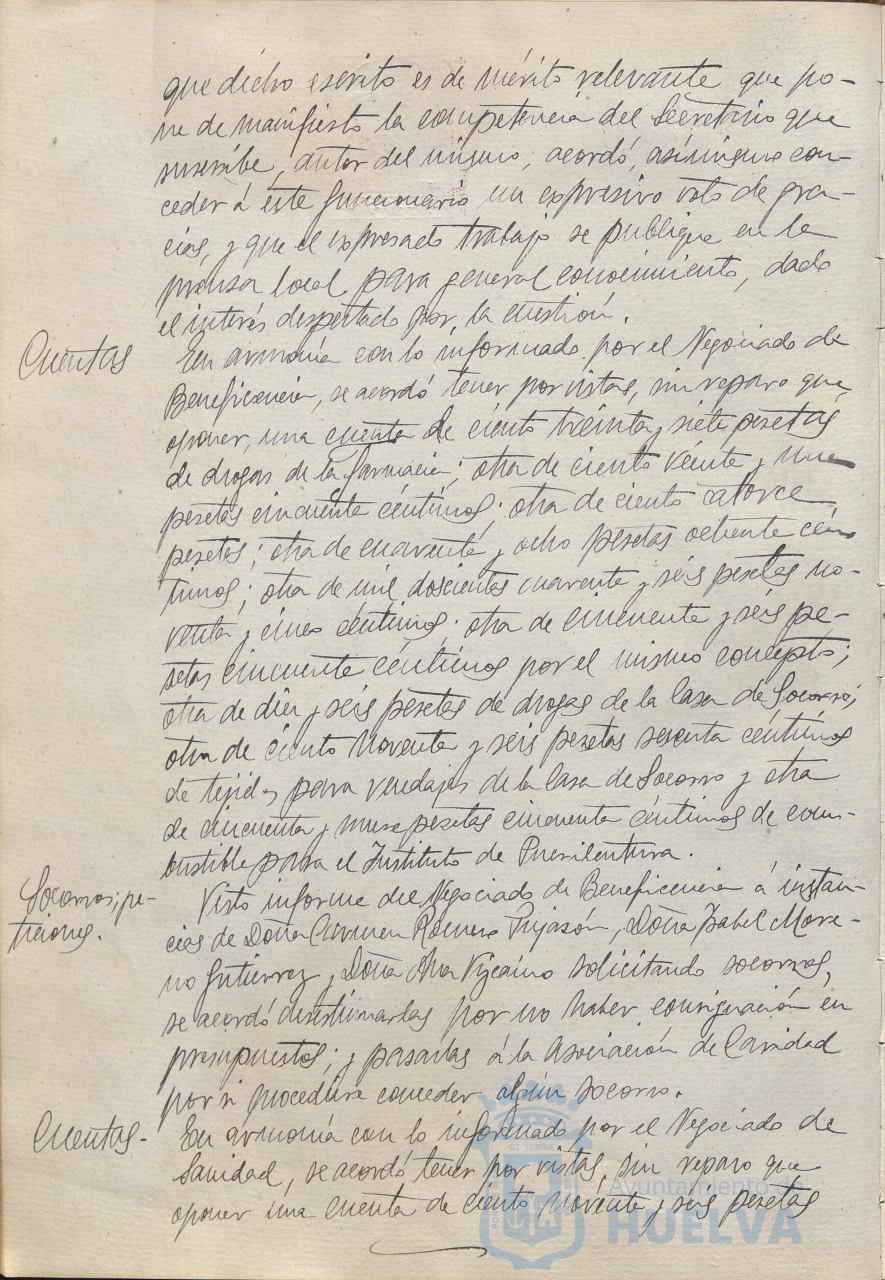 que dicho escrito es de mérito relevante que po-
ne de manifiesto la competencia del Secretario que
suscribe, autor del mismo, acordó, asimismo con-
ceder á este funcionario un expresivo voto de gra-
cias, y que el expresado trabajo se publique en la
prensa local para general conocimiento, dado
el interés despertado por la cuestión.
Cuentas
En armonía con lo informado por el Negociado de
Beneficencia, se acordó tener por vistas, sin reparo que
oponer, una cuenta de ciento treinta y siete pesetas
de drogas de la farmacia; otra de ciento veinte y una
pesetas cincuenta céntimos; otra de ciento catorce
pesetas; otra de cuarenta y ocho pesetas ochenta cén
timos; otra de mil doscientas cuarenta y seis pesetas no-
venta y cinco céntimos; otra de cincuenta y seis pe-
setas cincuenta céntimos por el mismo concepto;
otra de diez y seis pesetas de drogas de la Casa de Socorro;
otra de ciento noventa y seis pesetas sesenta céntimos
de tejidos para vendajes de la Casa de Socorro y otra
de cincuenta y nueve pesetas cincuenta céntimos de com-
bustible para el Instituto de Puericultura.
Socorros; pe-
ticiones.
Visto informe del Negociado de Beneficencia á instan-
cias de Doña Carmen Romero, Doña Isabel More-
no Gutierrez y Doña Ana Vizcaino solicitando socorros,
se acordó desestimarlas por no haber consignación en
presupuestos; y pasarlas á la Asociación de Caridad
por si procediera conceder algún socorro.
Cuentas-
En armonía con lo informado por el Negociado de
Sanidad, se acordó tener por vistas, sin reparo que
oponer una cuenta de ciento noventa y seis pesetas
Ayuntamiento de
HUELVA